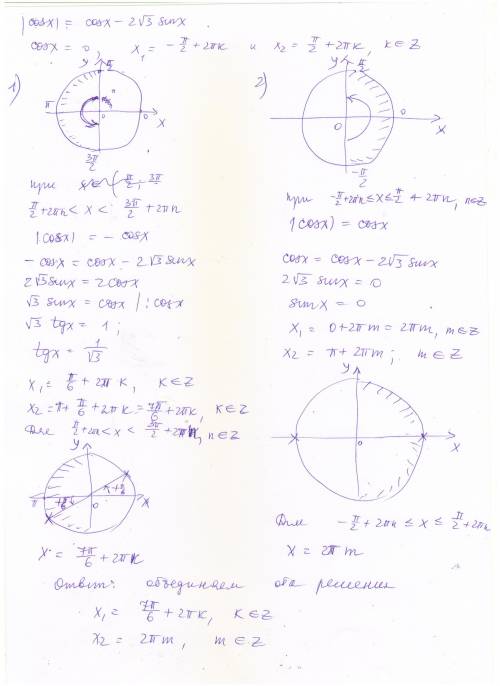 |cosx| = cosx - 2√3 sinx
cosx = 0, x₁ = -π/2 + 2πk и x₂ = π/2 + 2πk, k∈Z
1)
y π/2
π 0 0 x
3π/2
при
π/2 + 2πn < x < 3π/2 + 2πn
|cosx| = - cosx
- cosx = cosx - 2√3 sinx
2√3 sinx = 2cosx
√3 sinx = cosx | : cosx
√3 tgx = 1;
tgx = 1/√3
x₁ = π/6 + 2πk, k∈Z
x₂ = π + π/6 + 2πk = 7π/6 + 2πk, k∈Z
Для π/2 + 2πn < x < 3π/2 + 2πn, n∈Z
y
π 0 x
x = 7π/6 + 2πk
2)
y π/2
0 0 x
-π/2
при -π/2 + 2πn ≤ x ≤ π/2 + 2πn, n∈Z
|cosx| = cosx
cosx = cosx - 2√3 sinx
2√3 sinx = 0
sinx = 0
x₁ = 0 + 2πm = 2πm, m∈Z
x₂ = π + 2πm; m∈Z
y
0 x
Для -π/2 + 2πn ≤ x ≤ π/2 + 2πn
x = 2πm
Ответ: объединяем оба решения
x₁ = 7π/6 + 2πk, k∈Z
x₂ = 2πm, m∈Z